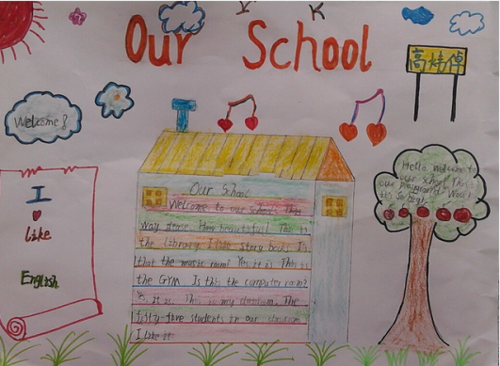 Our School
高炜倬
Welcome!
I
like
English
Our School
Welcome to our School. This
Way please. How beautiful! This is
the library. I like story books. Is
that the music room? Yes, it is. This is
the GYM. Is this the computer room?
it is. This is my classroom. The
fifty-five students in our classroom
I like it
Hello welcome to
our school. This is
our playground.